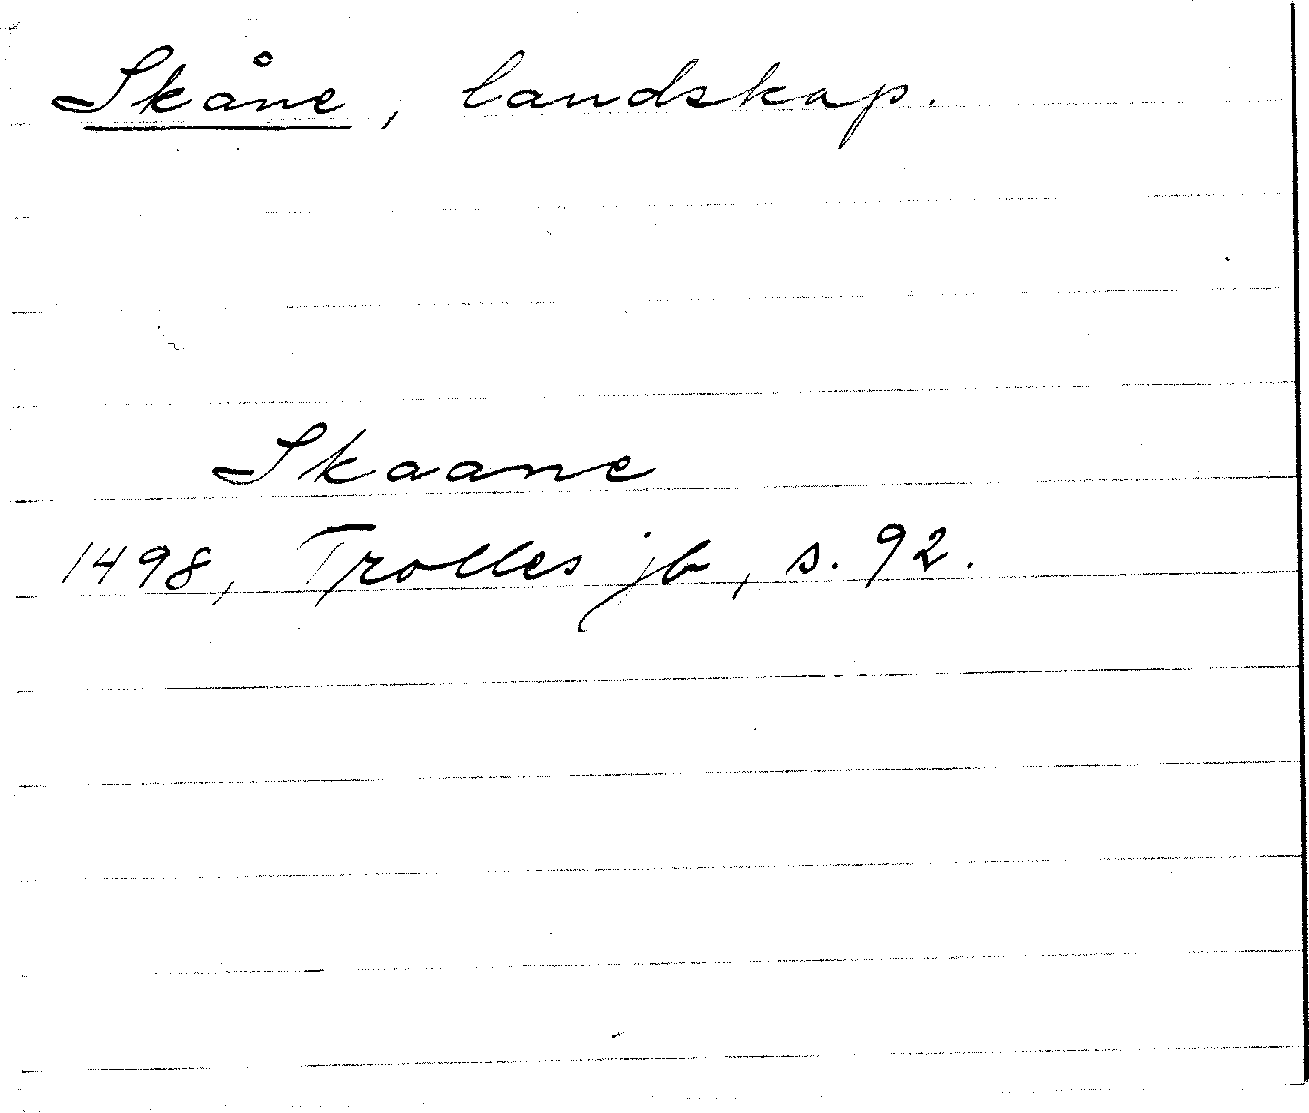 Skåne, landskap.
Skaane
1498, Trolles jb, s. 92.